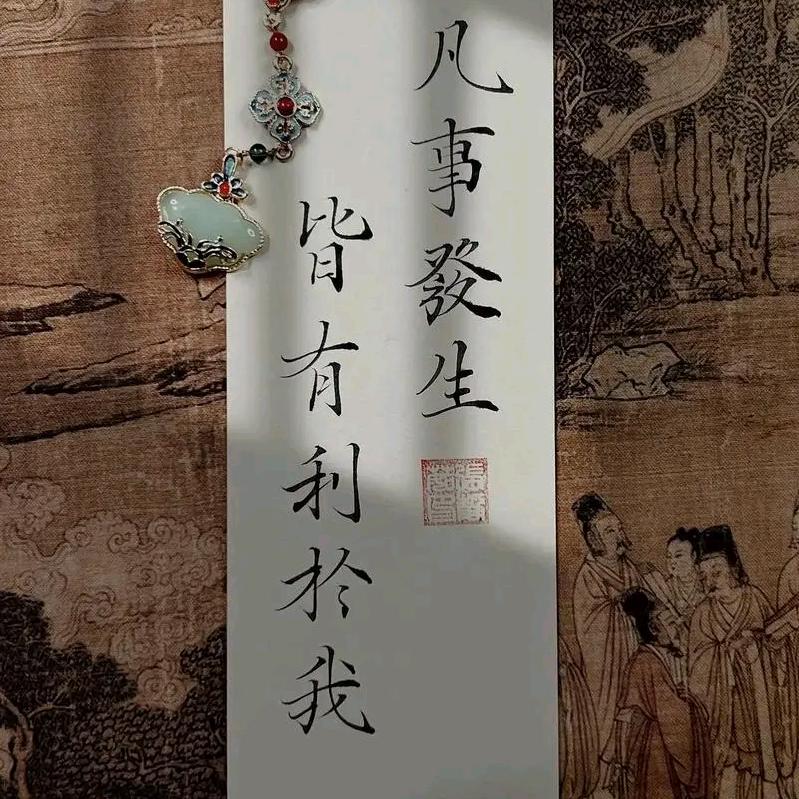 凡事發生
皆有利於我